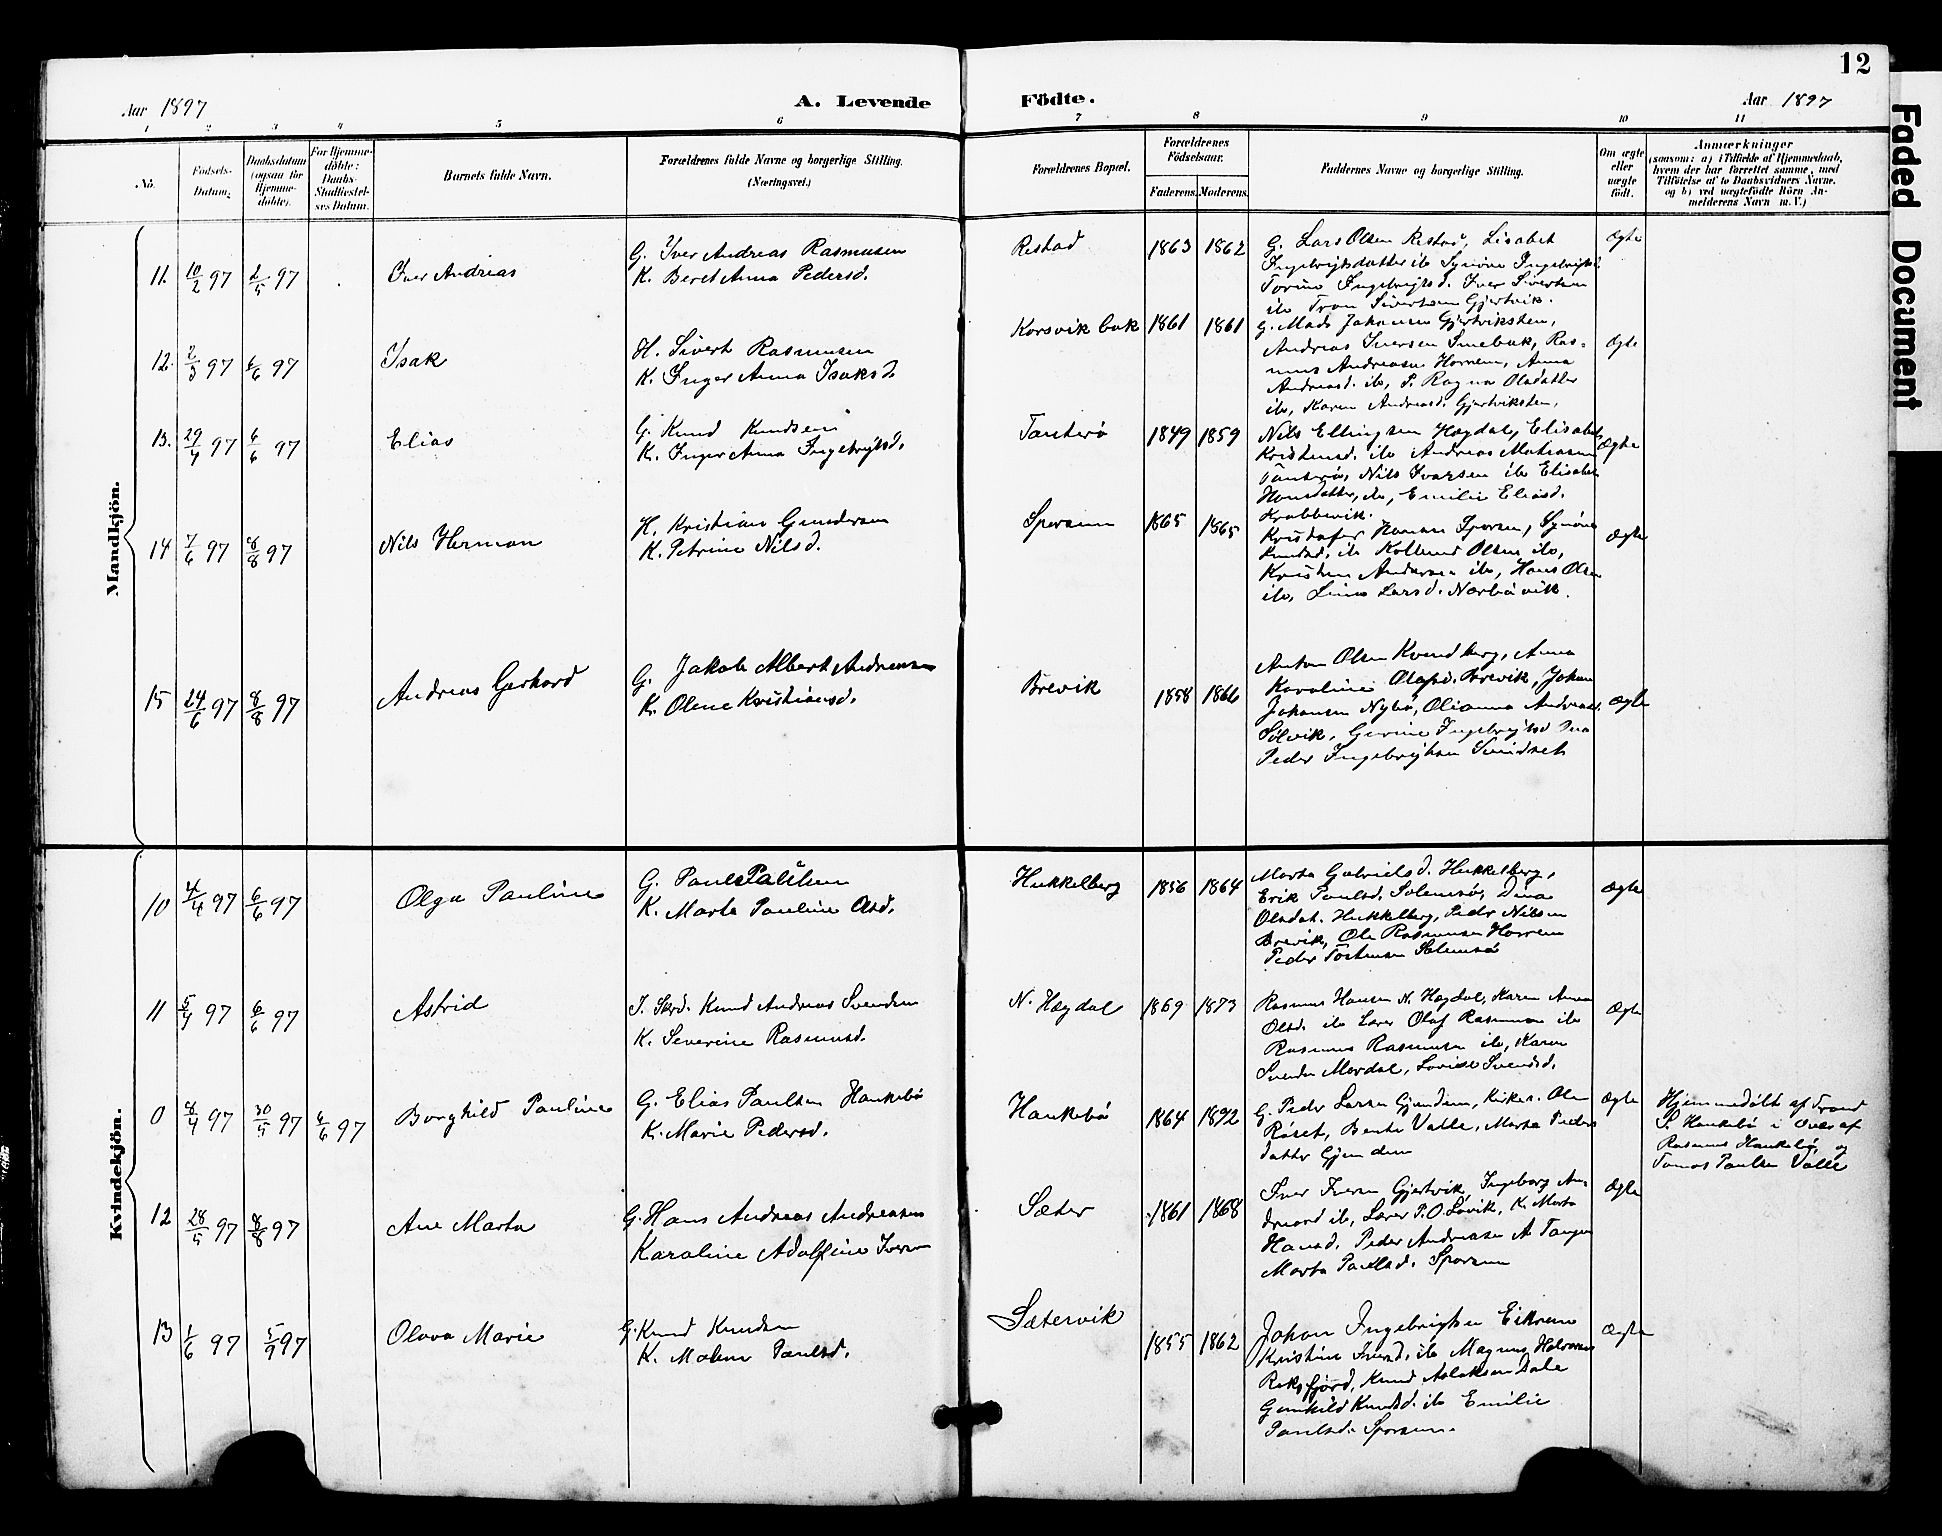 12
Aar 1897
A. Levende
Födte.
Aar 1897
1 2 3 4 5 6 7 8 9 10 11
No.
Födsels-Datum.
Daabsdatum (ogsaa for Hjemmedöbte).
For Hjemmedöbte: Daabs-Stadfæstelses Datum.
Barnets fulde Navn.
Forældrenes fulde Navne og borgerlige Stilling.
(Næringsvei.)
Forældrenes Bopæl.
Forældrenes Födselsaar.
Faderens. Moderens.
Faddernes Navne og borgerlige Stilling.
Om ægte eller uægte født.
Anmærkninger
(saasom: a) i Tilfælde af Hjemmedaab,
hvem der har forrettet samme, med
Tilföielse af to Daabsvidners Navne,
og b) ved uægtefødte Börn An-
melderens Navn m. V.)
Mandkjön.
11. 10/2 97 2/5 97 Iver Andreas
G. Iver Andreas Rasmusen
K. Beret Anna Pedersd.
Restad 1863 1862
G. Lars Olsen Restad, Lisabet
Ingebrigtsdatter ib Synöve Ingebrigtsd.
Torine Ingebrigtsd. Iver Sivertsen
ib Tron Sivertsen Gjertvik.
Ægte
12. 2/3 97 6/6 97 Isak
H. Sivert Rasmusen
K. Inger Anna Isaksd.
Korsvikbak 1861 1861
G. Mads Johansen Gjertviksten,
Andreas Iversen Smebak, Ras-
mus Andreasen Horrem, Anna
Andreasd. ib, P. Ragna Olsdatter
ib, Karen Andreasd. Gjertviksten.
Ægte
13. 29/4 97 6/6 97 Elias
G. Knud Knudsen
K. Inger Anna Ingebrigtsd.
Tanterö 1849 1859
Nils Ellingsen Hægdal, Elisabet
Kristensd. ib Andreas
Tanterö, Nils Ivarsen ib Elisabet
Hansdatter, ib, Emilie Eliasd.
Krabbevik.
Ægte
14 7/6 97 8/8 97 Nils Herman
H. Kristian Gundersen
K. Petrine Nilsd.
Sporsem 1865 1865
Kristofer Hansen Sporsem, Synöve
Knudsd. ib Olsen ib,
Kristen Andersen ib, Hans Olsen
ib, Larsd. Nærbövik.
Ægte
15 24/6 97 8/8 97 Andreas Gerhard
G. Jakob Albert Andreasen
K. Oline Kristiansd.
Brevik 1858 1866
Anton Olsen Kvendberg, Anna
Karoline Olafsd. Brevik, Johan
Johansen Nybö, Olianna Andreasd.
Sölvik, Gurine Ingebrigtsd
Peder Ingebrigtsen Smidset
Ægte
Kvindekjön.
10 4/4 97 6/6 97 Olga Pauline
G. Paul Pålsen
K. Marta Pauline Olsd.
Hukkelberg 1856 1864
Marta Gabrielsd. Hukkelberg,
Erik Paulsd. Solemsö, Dina
Olsdat. Hukkelberg, Peder Nilsen
Brevik, Ole Rasmusen Horrem
Peder Torstensen Solemsö
Ægte
11 5/4 97 6/6 97 Astrid
Knud Andreas Svendsen
K. Severine Rasmusd.
N. Hægdal 1869 1873
Rasmus Hansen N. Hægdal, Karen Anna
Olsd. ib Lærer Olaf Rasmusen ib
Rasmus Rasmusen ib, Karen
Svendsd. Mordal, Lovise Svendsd.
Ægte
0 8/4 97 30/4 97 6/6 97 Borghild Pauline
G. Elias Paulsen Haukebö
K. Marie Pedersd.
Haukebö 1864 1892
G. Peder Larsen Gjendem, Kirkes. Ole
Röset, Bente Valle, Marta Peders
datter Gjendem
Ægte
Hjemmedöbt af Trond
P. Haukebö i Overv. af
Rasmus Haukebö, og
Tomas Paulsen Valle
12 28/5 97 8/8 97 Ane Marta
G. Hans Andreas Andreasen
Karoline Adolfine Iversen
Sæter 1861 1868
Iver Iversen Gjertvik, Ingeborg An-
dreasd ib, Lærer P. O. Lövik, K. Marta
Hansd. Peder Andreasen A. Tangen
Marta Paulsd. Sporsem
Ægte
13 1/6 97 5/9 97 Olava Marie
G. Knud Knudsen
K. Malene Paulsd.
Sætervik 1855 1862
Johan Ingebrigtsen Eikrem
Kristine Iversd. ib Magnus Halvorsen
Raksfjord, Knud Aslaksen Dale
Gunhild Knudsd. ib Emilie
Paulsd. Sporsem.
Ægte
Faded Document